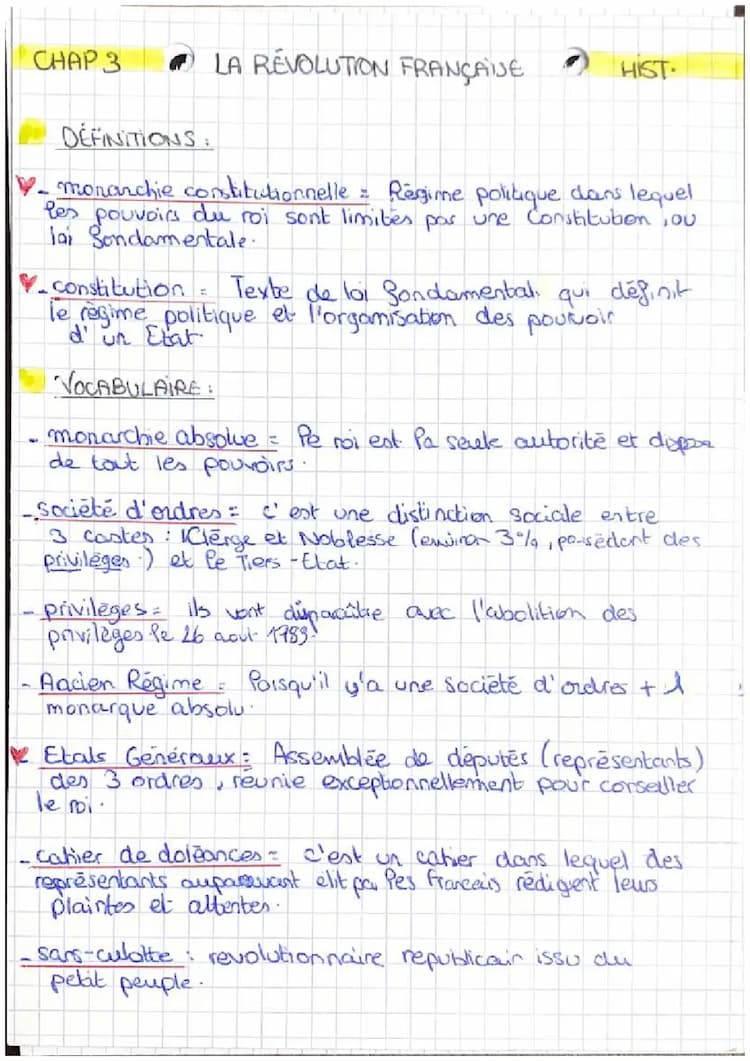 CHAP 3 LA RÉVOLUTION FRANÇAISE HIST.
DÉFINITIONS :
- monarchie constitutionnelle = Régime politique dans lequel
les pouvoirs du roi sont limités par une Constitution, ou
loi fondamentale.
- constitution = Texte de loi fondamental qui définit
le régime politique et l'organisation des pouvoir
d'un Etat.
VOCABULAIRE :
- monarchie absolue = le roi est la seule autorité et dispose
de tout les pouvoirs.
- société d'ordres = c'est une distinction sociale entre
3 castes : Clergé et Noblesse (environ 3%, possèdent des
privilèges.) et le Tiers-Etat.
- privilèges = ils vont disparaître avec l'abolition des
privilèges le 26 aout 1789.
- Ancien Régime = lorsqu'il y'a une société d'ordres + 1
monarque absolu.
Etats Généraux : Assemblée de députés (représentants)
des 3 ordres, réunie exceptionnellement pour conseiller
le roi.
- cahier de doléances = c'est un cahier dans lequel des
représentants auparavant elit par les Francais rédigent leurs
plaintes et attentes.
- sans-culotte : revolutionnaire republicain issu du
petit peuple.